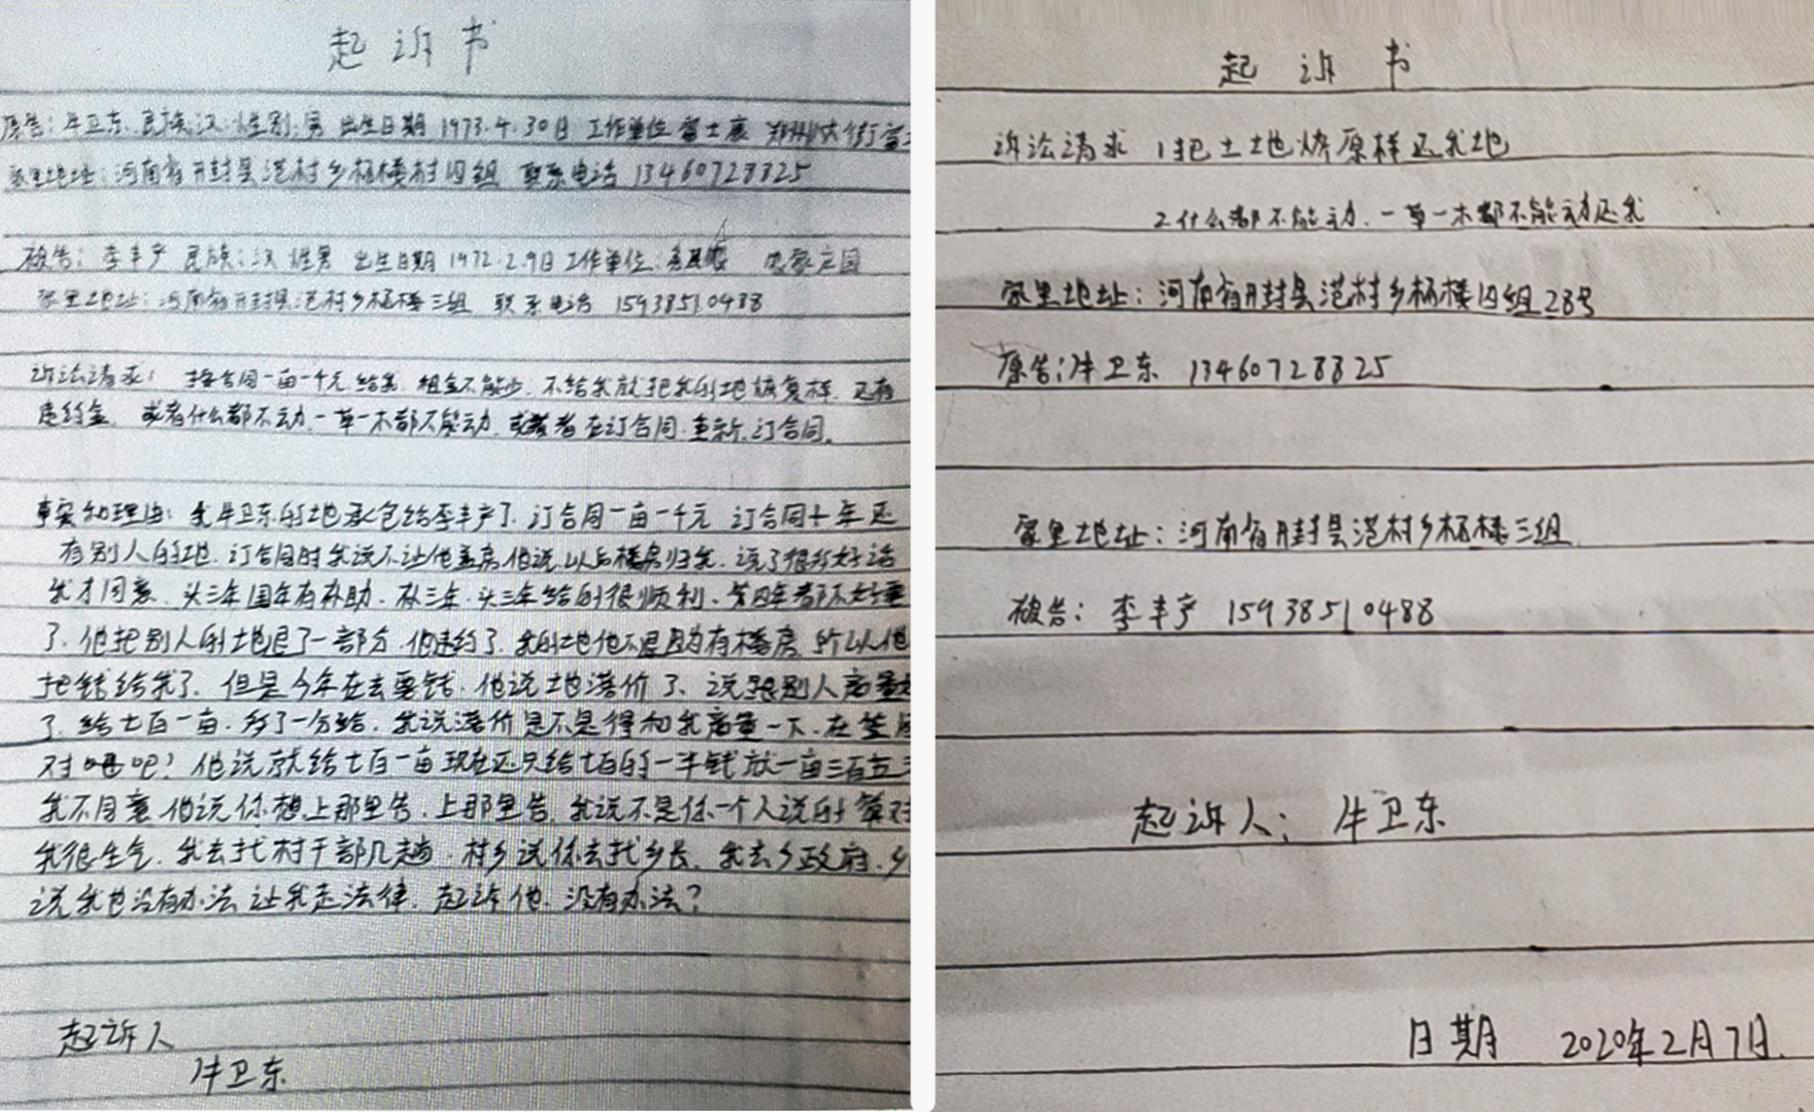 起诉书
原告：牛卫东 民族汉 性别：男 出生日期 1973.4.30日 工作单位富士康
家里地址：河南省开封县范村乡杨楼村四组 联系电话 13460728825
被告：李丰产 民族：汉 性男 出生日期 1972.2.9日 工作单位：
家里地址：河南省开封县范村乡杨楼三组 联系电话 15938510488
诉讼请求：按合同一亩一千元给我 租金不能少，不给我就把我的地恢复样，还有
违约金，或者什么都不动，一草一木都不能动，或者在订合同，重新订合同。
事实和理由：我牛卫东的地承包给李丰产了，订合同一亩一千元 订合同十年还
有别人的地，订合同时我说不让他盖房他说以后楼房归我，说了很多好话
我才同意，头三年国年有补助，补三年，头三年给的很顺利、第四年都不好要
了，他把别人的地退了一部分，他违约了，我的地他不退因为有楼房，所以他
把钱给我了，但是今年在去要钱，他说地落价了、说跟别人商量好
了，给七百一亩，多了一分给，我说落价是不是得和我商量一下，在签
对吧？他说就给七百一亩现在还只给七百的一半钱就一亩三百五
我不同意他说你想上那里告，上那里告，我说不是你一个人说的算对
我很生气，我去找村干部几趟，村乡说你去找乡长，我去乡政府，乡
说我也没有办法让我走法律，起诉他，没有办法？
起诉人
牛卫东
起诉书
诉讼请求 1把土地恢原样还我地
2什么都不能动，一草一木都不能动还我
家里地址：河南省开封县范村乡杨楼四组28号
原告：牛卫东 13460728825
家里地址：河南省开封县范村乡杨楼三组
被告：李丰产 15938510488
起诉人：牛卫东
日期 2020年2月7日.